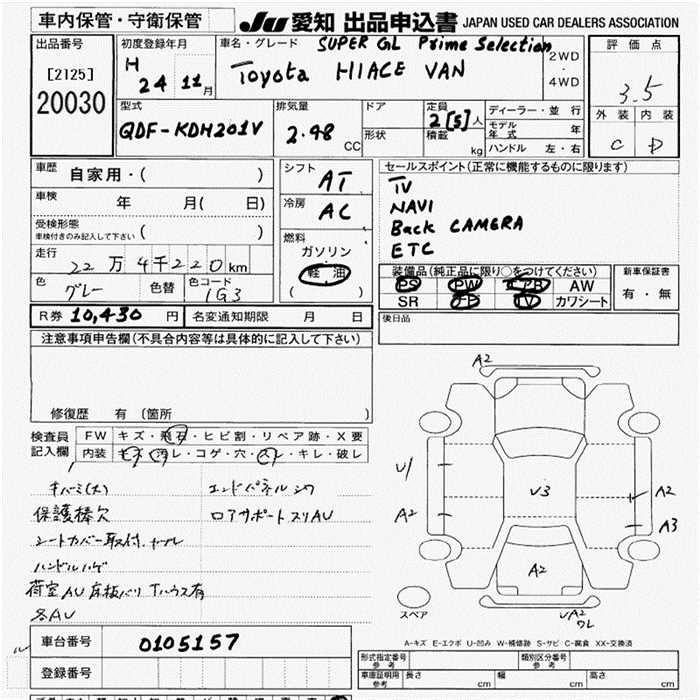 車内保管・守衛保管
JU 愛知 出品申込書 JAPAN USED CAR DEALERS ASSOCIATION
出品番号
[2125]
20030
初度登録年月
H 24 11月
車名・グレード
SUPER GL Prime Selection
Toyota HIACE VAN
2WD
・
4WD
評価点
3.5
外装 内装
C D
型式
QDF-KDH201V
排気量
2.98 CC
ドア
形状
定員
2[5]人
積載
kg
ディーラー・並行
モデル年式 年
ハンドル 左・右
車歴
自家用・( )
車検
年 月( 日)
受検形態
車検付きのみ記入して下さい ( )
走行
22万4千220km
色
グレー
色替
色コード
1G3
シフト
AT
冷房
AC
燃料
ガソリン
軽油
( )
セールスポイント(正常に機能するものに限ります)
TV
NAVI
Back CAMERA
ETC
装備品(純正品に限り○をつけてください)
PS PW エアB AW
SR TV カワシート
新車保証書
有・無
R券 10,430 円
名変通知期限 月 日
後日品
注意事項申告欄(不具合内容等は具体的に記入して下さい)
修復歴 有 (箇所 )
検査員
記入欄
FW キズ・飛石・ヒビ割・リペア跡・X要
内装 キズ・汚レ・コゲ・穴・スレ・キレ・破レ
キバミ(大)
保護棒欠
シートカバー取付
ハンドルハゲ
荷室AU 床板バリ Tハウス有
各AU
エンドパネルシワ
ロアサポートスリAU
A2
U1
A2
U3
A2
A3
A2
A2
スペア
A-キズ E-エクボ U-凹み W-補修跡 S-サビ C-腐食 XX-交換済
車台番号
0105157
登録番号
形式指定番号
参考
類別区分番号
参考
車庫証明用
参考
長さ cm
幅 cm
高さ cm